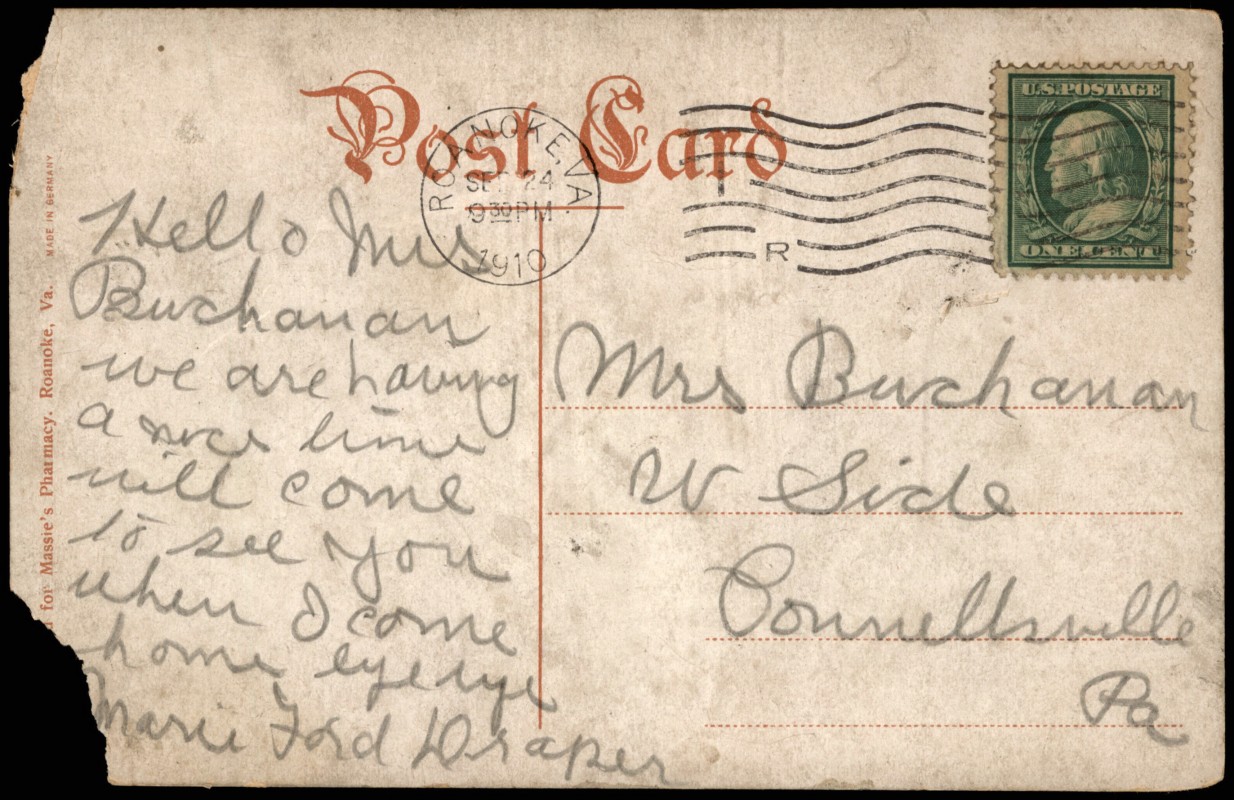 Post Card
ROANOKE, VA.
SEP 24
9 30 PM
1910
R
U.S. POSTAGE
ONE CENT
MADE IN GERMANY
for Massie's Pharmacy. Roanoke, Va.
Hello Mrs
Buchanan
we are having
a nice time
will come
to see you
when I come
home
Marie Ford Draper
Mrs Buchanan
W Side
Connellsville
Pa